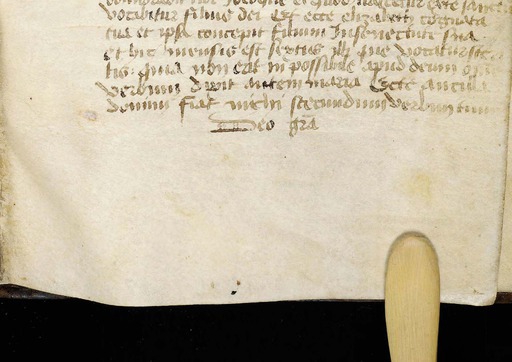 vocabitur filius dei Et ecce elizabeth cognata
tua et ipsa concepit filium In senectute sua
et hic mensis est sextus illi que vocatur ste
lis Quia non erit in possibile apud deum o
verbum dixit autem maria Ecce ancilla
domini fiat michi secundum verbum tuum
Deo gra